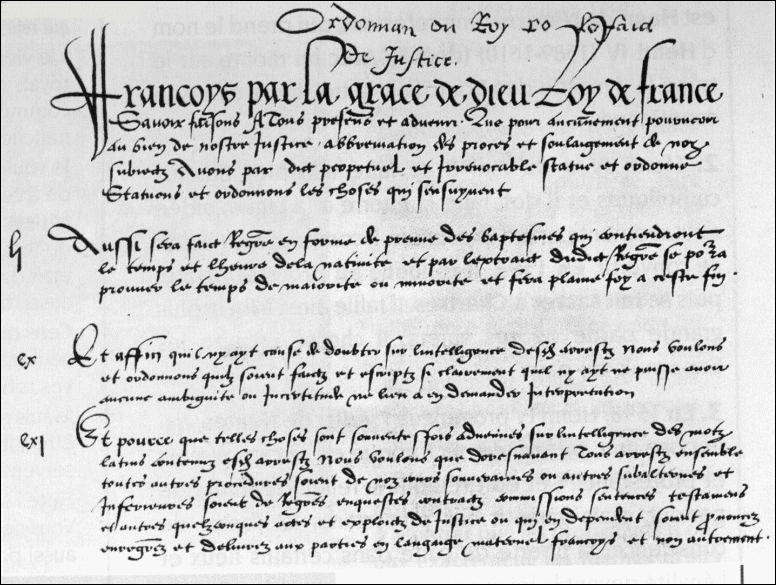 Ordonnan du Roy sur le faict
de Justice.
Francoys par la grace de dieu Roy de france
Savoir faisons A tous presens et advenir. Que pour aucunement pourveoir
au bien de nostre Justice, abbreviation des proces et soulaigement de noz
subiectz Avons par edict perpetuel et Irrevocable statue et ordonne
Statuons et ordonnons les choses qui sensuyvent
li Aussi sera faict Regre en forme de preuve des baptesmes qui contiendront
le temps et lheure de la nativite et par lextraict dudict Regre se porra
prouver le temps de maiorite ou minorite et fera plaine foy a ceste fin.
cx Et affin quil ny ayt cause de doubter sur lintelligence desdz arrestz Nous voulons
et ordonnons quilz soient faictz et escriptz si clairement quil ny ayt ne puisse avoir
aucune ambiguite ou Incertitude ne lieu a en demander Interpretation
cxi Et pource que telles choses sont souventesfois advenues sur lintelligence des motz
latins contenuz esdz arrestz Nous voulons que doresnavant Tous arrestz ensemble
toutes autres procedures soient de noz cours souveraines ou autres subalternes et
Inferieures soient de Regres enquestes contractz commissions sentences testamens
et autres quelzconques actes et exploictz de Justice ou qui en dependent soient prononcez
enregrez et delivrez aux parties en langaige maternel francoys et non autrement.